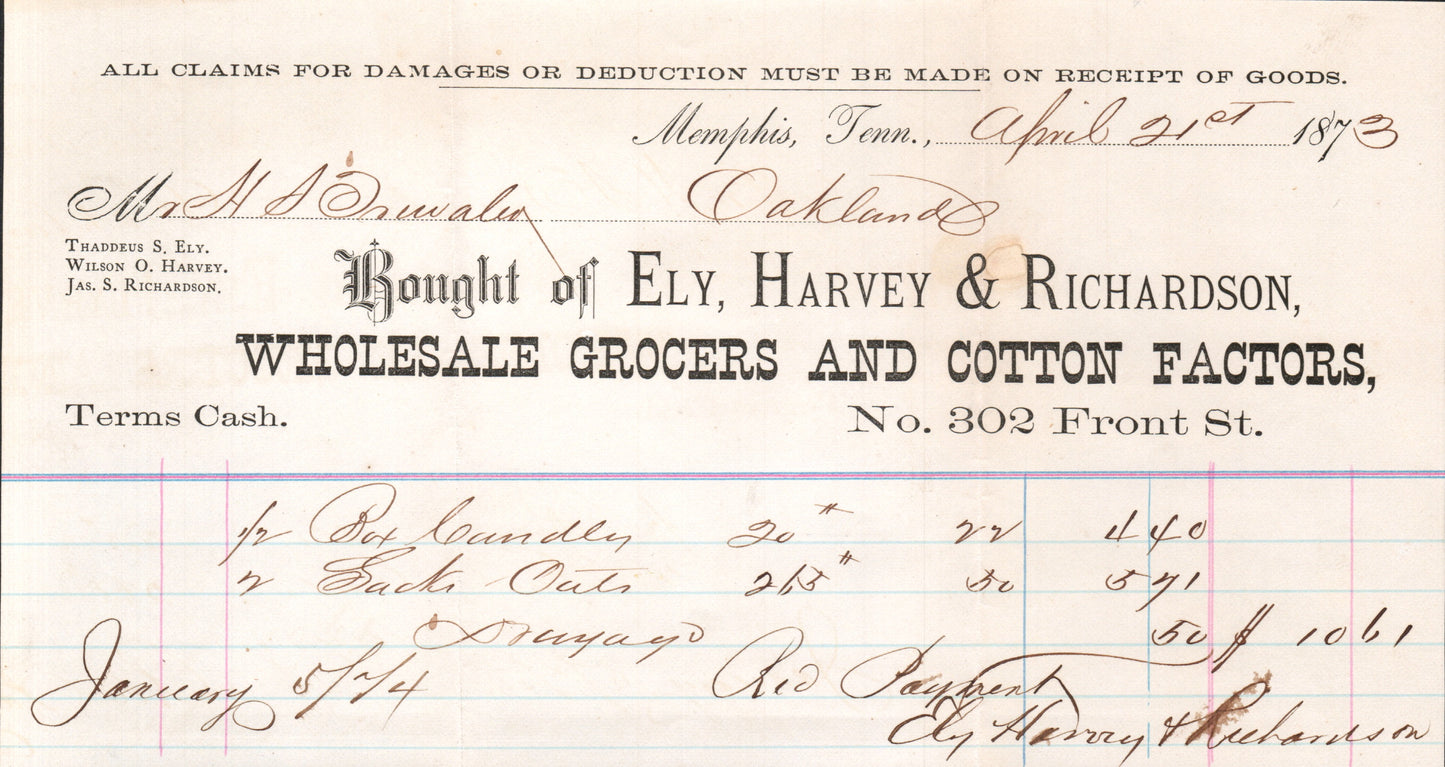 ALL CLAIMS FOR DAMAGES OR DEDUCTION MUST BE MADE ON RECEIPT OF GOODS.
Memphis, Tenn., April 21st 1873
Mr H S Oakland
THADDEUS S. ELY.
WILSON O. HARVEY.
JAS. S. RICHARDSON.
Bought of ELY, HARVEY & RICHARDSON,
WHOLESALE GROCERS AND COTTON FACTORS,
Terms Cash. No. 302 Front St.
1/2 Box Candles 20# 22 4 40
2 Sacks Oats 265# 50 5 71
Drayage 50 $ 10 61
January 5/74 Recd Payment
Ely Harvey & Richardson